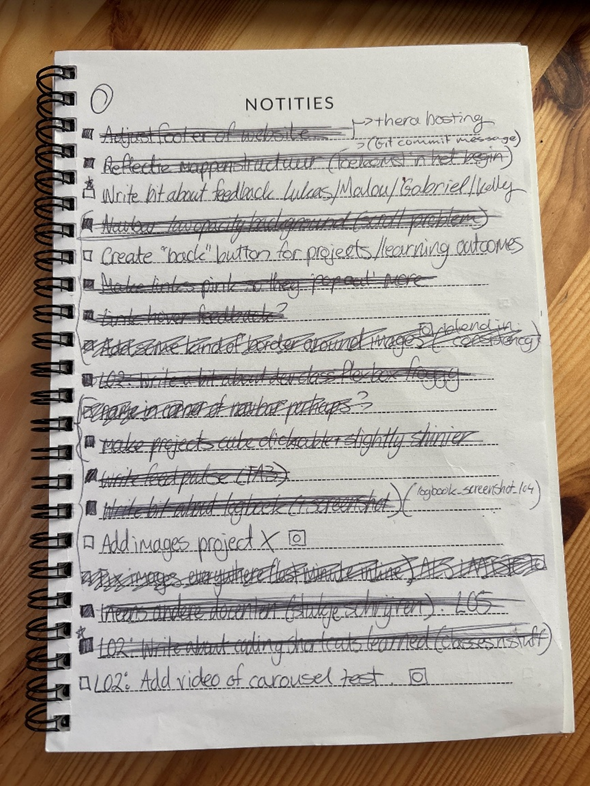 NOTITIES
Adjust footer of website -> thera hosting
-> (Git commit message)
Reflectie mappenstructuur (toekomst) in het begin
Write bit about feedback Lukas/Malou/Gabriel/Kelly
Navbar background (scroll problem)
Create "back" button for projects/learning outcomes
Make links pink so they 'pop out' more
Link hover feedback?
Add some kind of border around images (to blend in, consistency)
LO2: Write a bit about flexbox froggy
in corner of navbar perhaps?
make projects cube clickable + slightly shinier
Write feedpulse
Write bit about logbook (+ screenshot) (logbook_screenshot_lo4)
Add images project X
Fix images everywhere
andere docenten LO5
LO2: Write about coding shortcuts learned (classes n stuff)
LO2: Add video of carousel test.